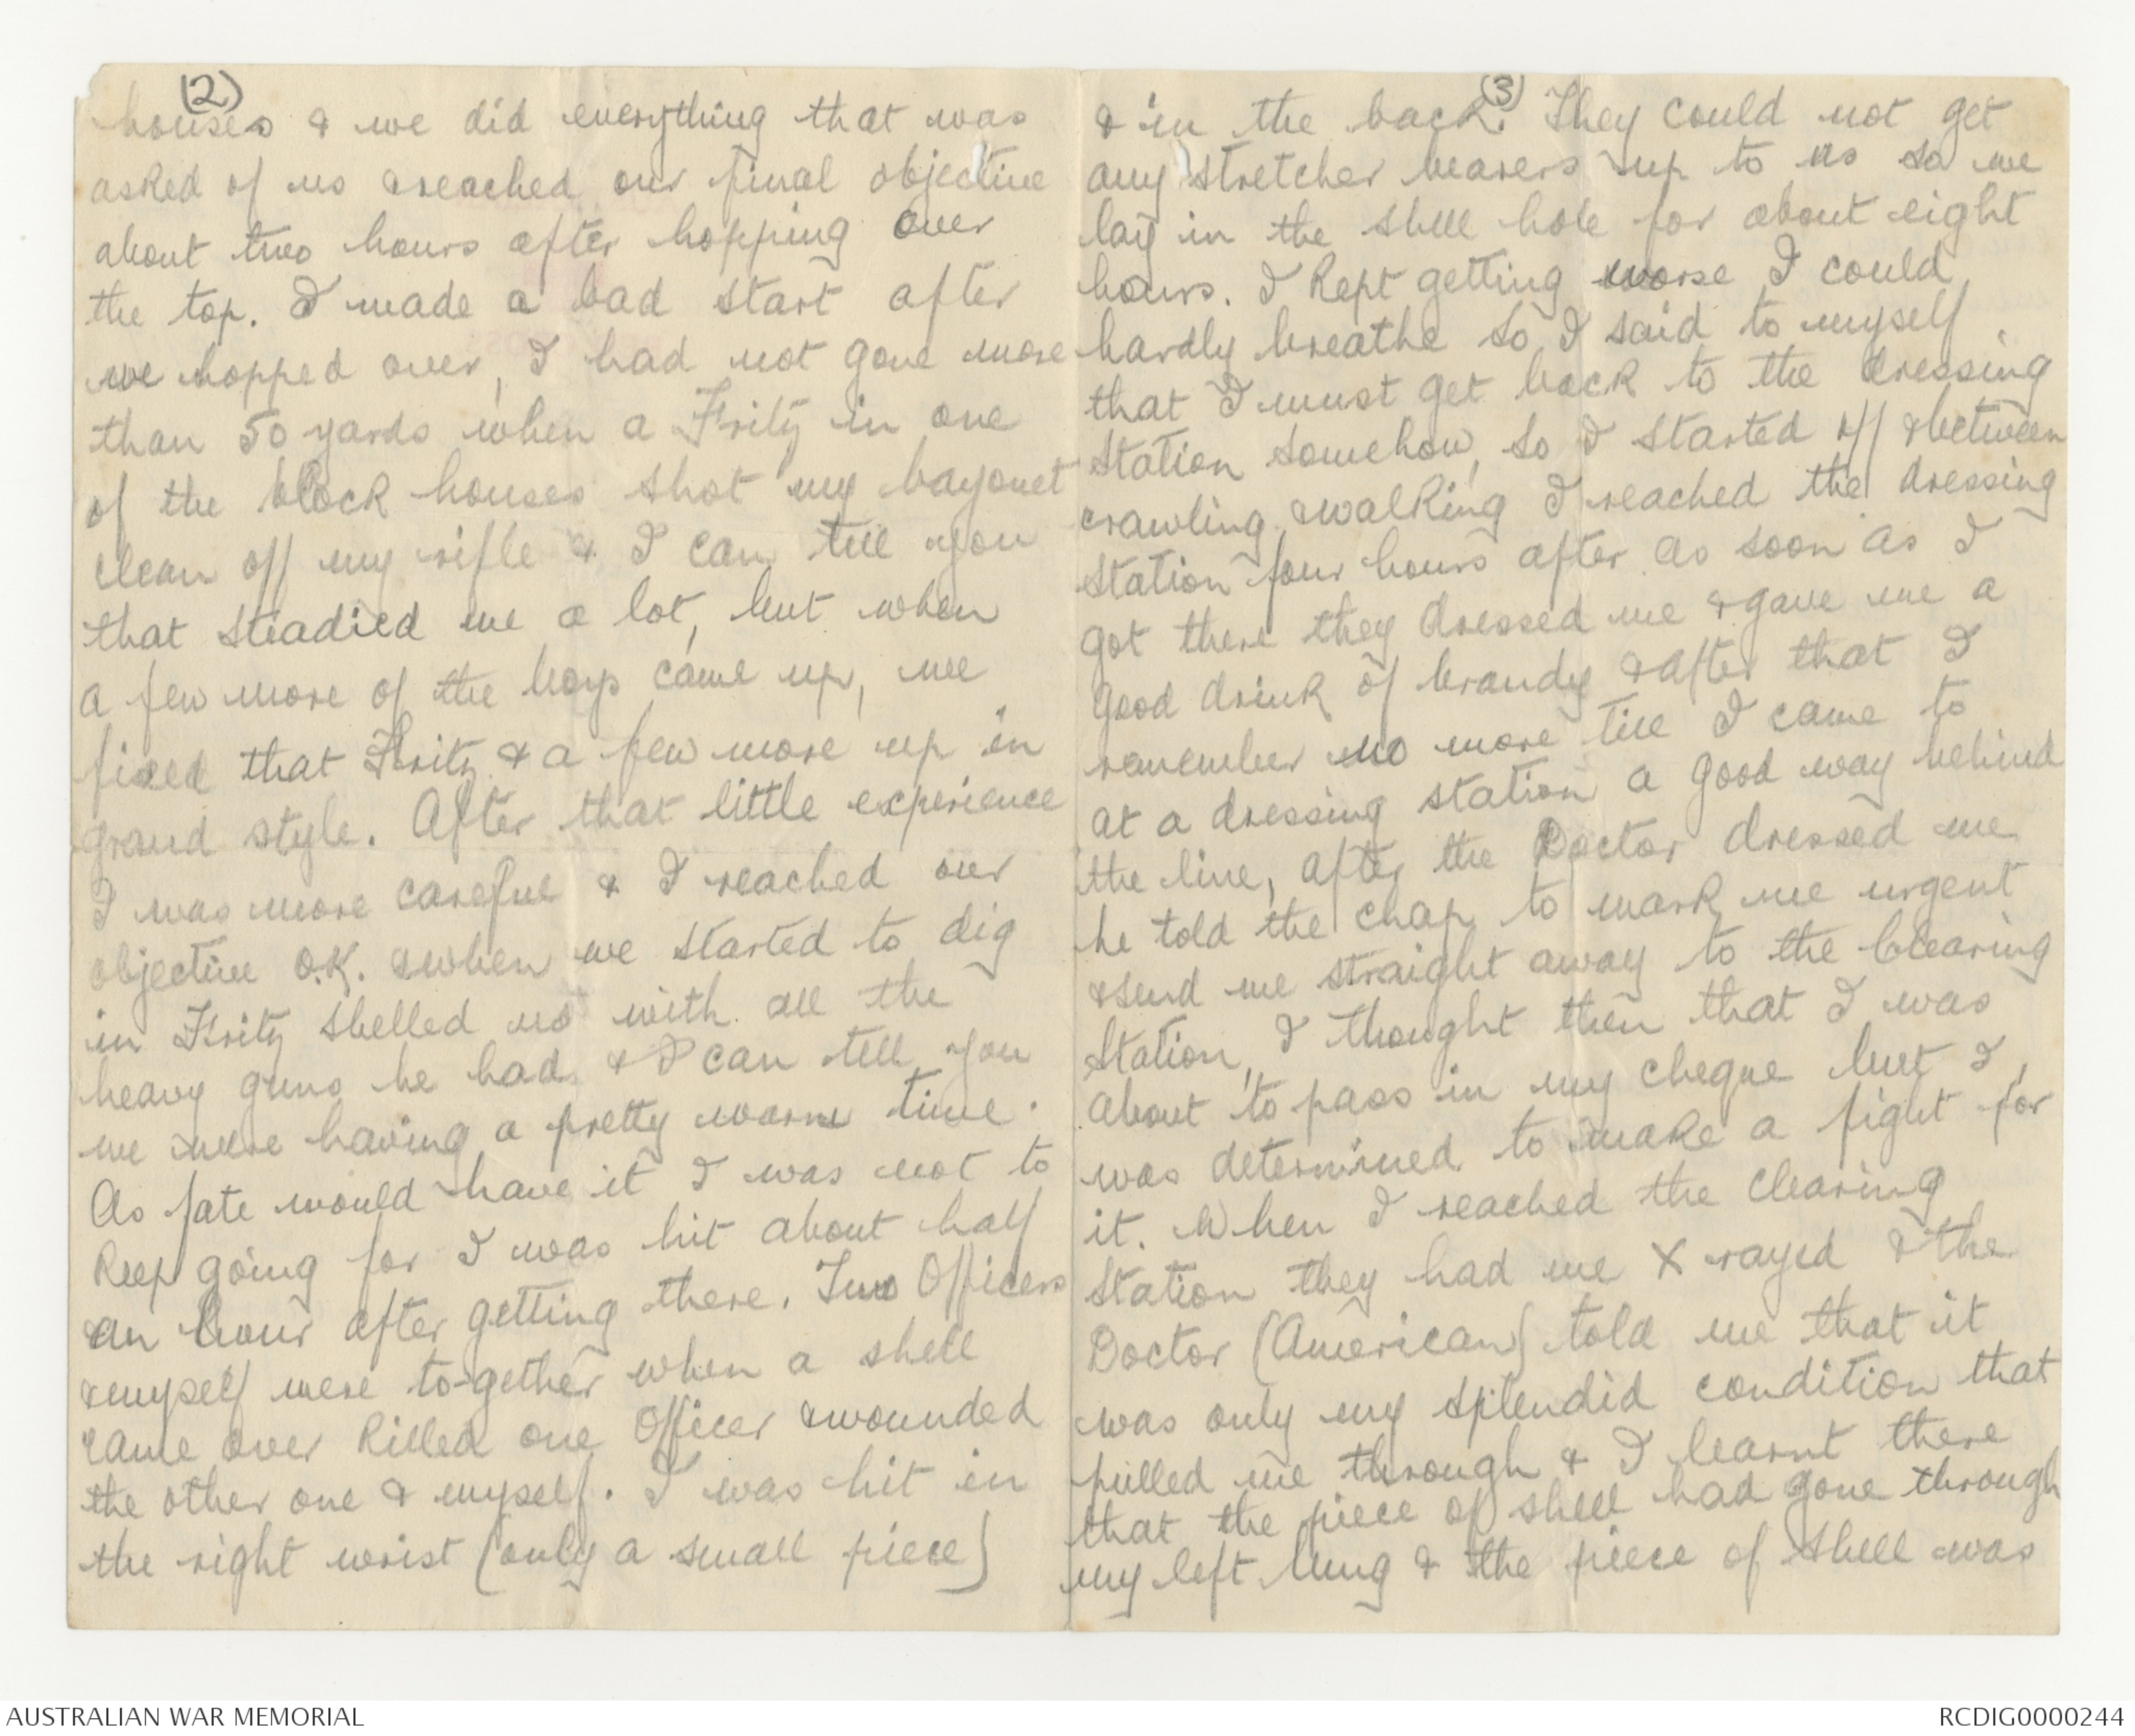 (2)
houses & we did everything that was
asked of us & reached our final objective
about two hours after hopping over
the top. I made a bad start after
we hopped over, I had not gone more
than 50 yards when a Fritz in one
of the block houses shot my bayonet
clean off my rifle & I can tell you
that steadied me a lot, but when
a few more of the boys came up, we
fixed that Fritz & a few more up in
grand style. After that little experience
I was more careful & I reached our
objective O.K. & when we started to dig
in Fritz shelled us with all the
heavy guns he had & I can tell you
we were having a pretty warm time.
As fate would have it I was not to
keep going for I was hit about half
an hour after getting there. Two Officers
& myself were to-gether when a shell
came over killed one Officer & wounded
the other one & myself. I was hit in
the right wrist (only a small piece)
(3)
& in the back. They could not get
any stretcher bearers up to us so we
lay in the shell hole for about eight
hours. I kept getting worse I could
hardly breathe so I said to myself
that I must get back to the dressing
station somehow, so I started off & between
crawling & walking I reached the dressing
station four hours after as soon as I
got there they dressed me & gave me a
good drink of brandy & after that I
remember no more till I came to
at a dressing station a good way behind
the line, after the Doctor dressed me
he told the chap to mark me urgent
& send me straight away to the Clearing
Station, I thought then that I was
about to pass in my cheque but I
was determined to make a fight for
it. When I reached the Clearing
Station they had me X rayed & the
Doctor (American) told me that it
was only my splendid condition that
pulled me through & I learnt there
that the piece of shell had gone through
my left lung & the piece of shell was
AUSTRALIAN WAR MEMORIAL
RCDIG0000244